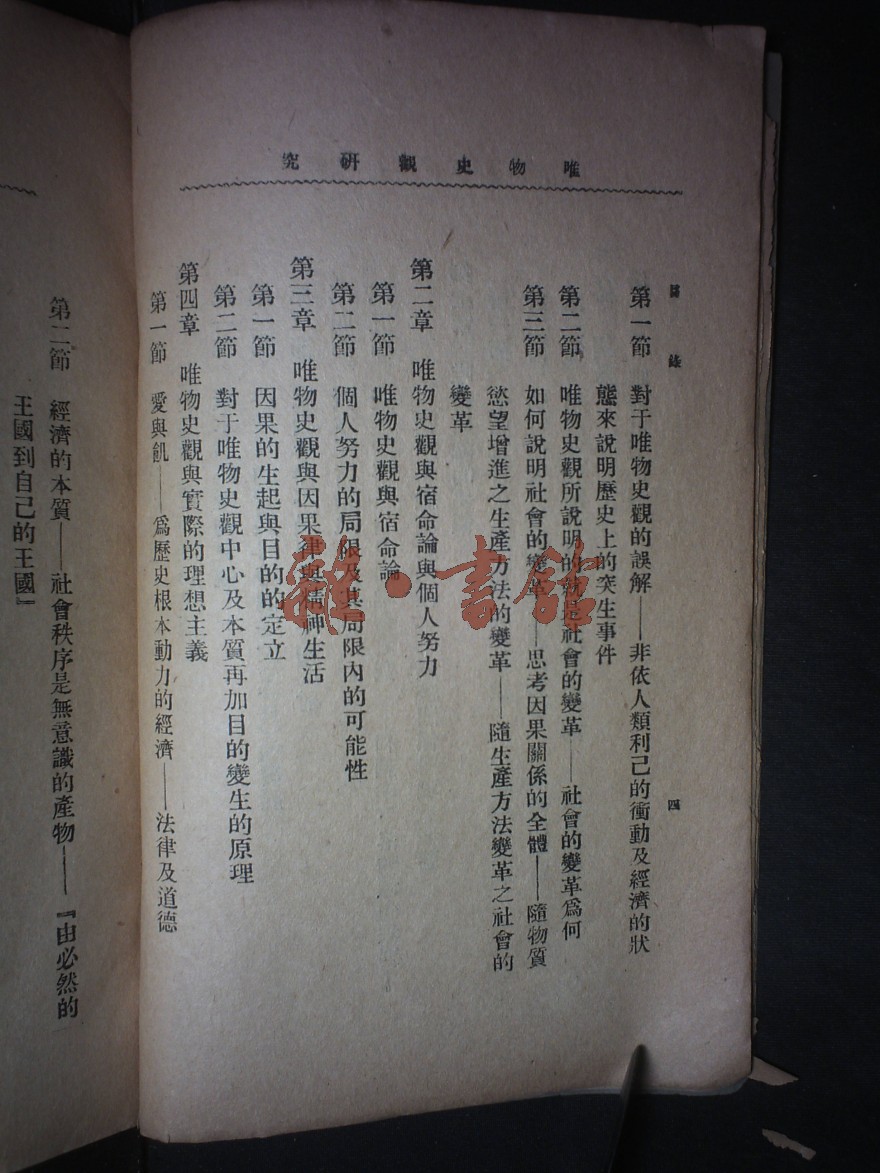 唯物史觀研究
目錄
四
第一節　對于唯物史觀的誤解——非依人類利己的衝動及經濟的狀
態來說明歷史上的突生事件
第二節　唯物史觀所說明的就是社會的變革——社會的變革爲何
第三節　如何說明社會的變革——思考因果關係的全體——隨物質
慾望增進之生產方法的變革——隨生產方法變革之社會的
變革
第二章　唯物史觀與宿命論與個人努力
第一節　唯物史觀與宿命論
第二節　個人努力的局限及其局限內的可能性
第三章　唯物史觀與因果律與精神生活
第一節　因果的生起與目的的定立
第二節　對于唯物史觀中心及本質再加目的變生的原理
第四章　唯物史觀與實際的理想主義
第一節　愛與飢——爲歷史根本動力的經濟——法律及道德
第二節　經濟的本質——社會秩序是無意識的產物——『由必然的
王國到自己的王國』
雜·書館